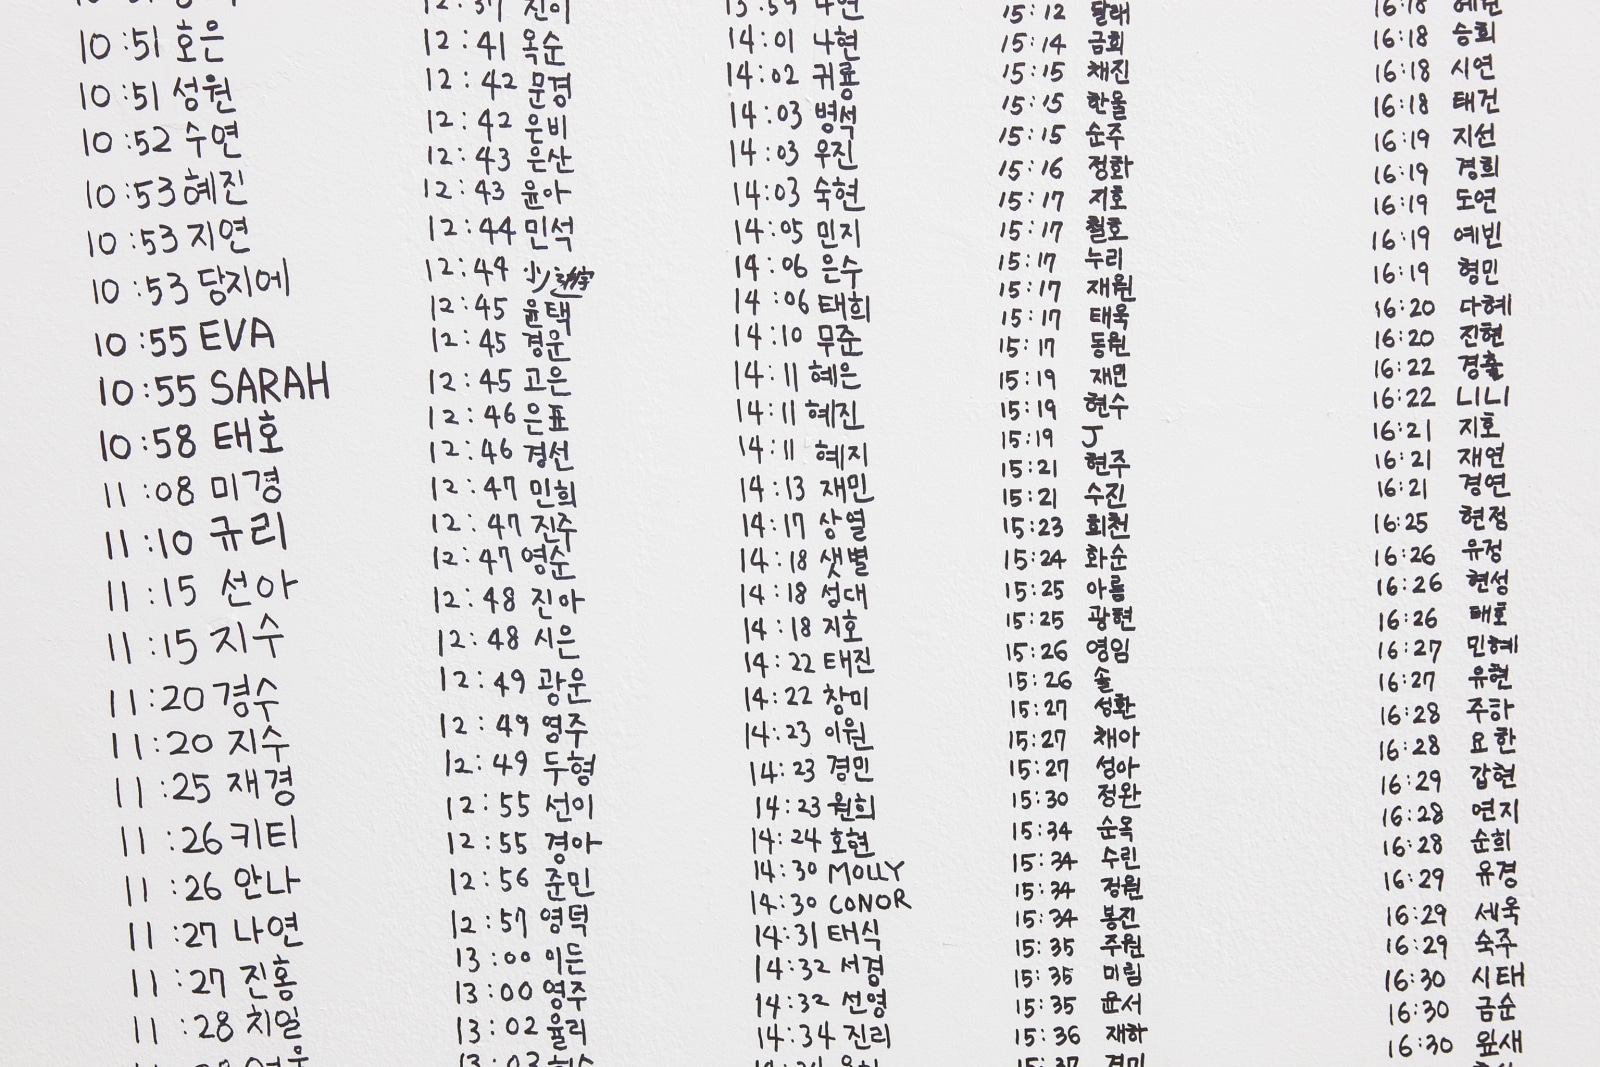 10:51 호은
10:51 성원
10:52 수연
10:53 혜진
10:53 지연
10:53 당지에
10:55 EVA
10:55 SARAH
10:58 태호
11:08 미경
11:10 규리
11:15 선아
11:15 지수
11:20 경수
11:20 지수
11:25 재경
11:26 키티
11:26 안나
11:27 나연
11:27 진홍
11:28 치일
12:37 진이
12:41 옥순
12:42 문경
12:42 은비
12:43 은산
12:43 윤아
12:44 민석
12:44
12:45 윤택
12:45 경운
12:45 고은
12:46 은표
12:46 경선
12:47 민희
12:47 진주
12:47 영순
12:48 진아
12:48 시은
12:49 광운
12:49 영주
12:49 두형
12:55 선이
12:55 경아
12:56 준민
12:57 영덕
13:00 이든
13:00 영주
13:02 율리
13:59
14:01 나현
14:02 귀룡
14:03 병석
14:03 우진
14:03 숙현
14:05 민지
14:06 은수
14:06 태희
14:10 무준
14:11 혜은
14:11 혜진
14:11 혜지
14:13 재민
14:17 상열
14:18 샛별
14:18 성대
14:18 지호
14:22 태진
14:22 창미
14:23 이원
14:23 경민
14:23 원희
14:24 호현
14:30 MOLLY
14:30 CONOR
14:31 태식
14:32 서경
14:32 선영
14:34 진리
15:12 달래
15:14 금희
15:15 채진
15:15 한울
15:15 순주
15:16 정화
15:17 지호
15:17 철호
15:17 누리
15:17 재원
15:17 태욱
15:17 동원
15:19 재민
15:19 현수
15:19 J
15:21 현주
15:21 수진
15:23 희천
15:24 화순
15:25 아름
15:25 광현
15:26 영임
15:26 솔
15:27 성환
15:27 채아
15:27 성아
15:30 정완
15:34 순옥
15:34 수린
15:34 정원
15:34 봉진
15:35 주원
15:35 미림
15:35 윤서
15:36 재하
15:37 경미
16:18
16:18 승희
16:18 시연
16:18 태건
16:19 지선
16:19 경희
16:19 도연
16:19 예빈
16:19 형민
16:20 다혜
16:20 진현
16:22 경출
16:22 LILI
16:21 지호
16:21 재연
16:21 경연
16:25 현정
16:26 유정
16:26 현성
16:26 태호
16:27 민혜
16:27 유현
16:28 주하
16:28 요한
16:29 갑현
16:28 연지
16:28 순희
16:29 유경
16:29 세욱
16:29 숙주
16:30 시태
16:30 금순
16:30 잎새